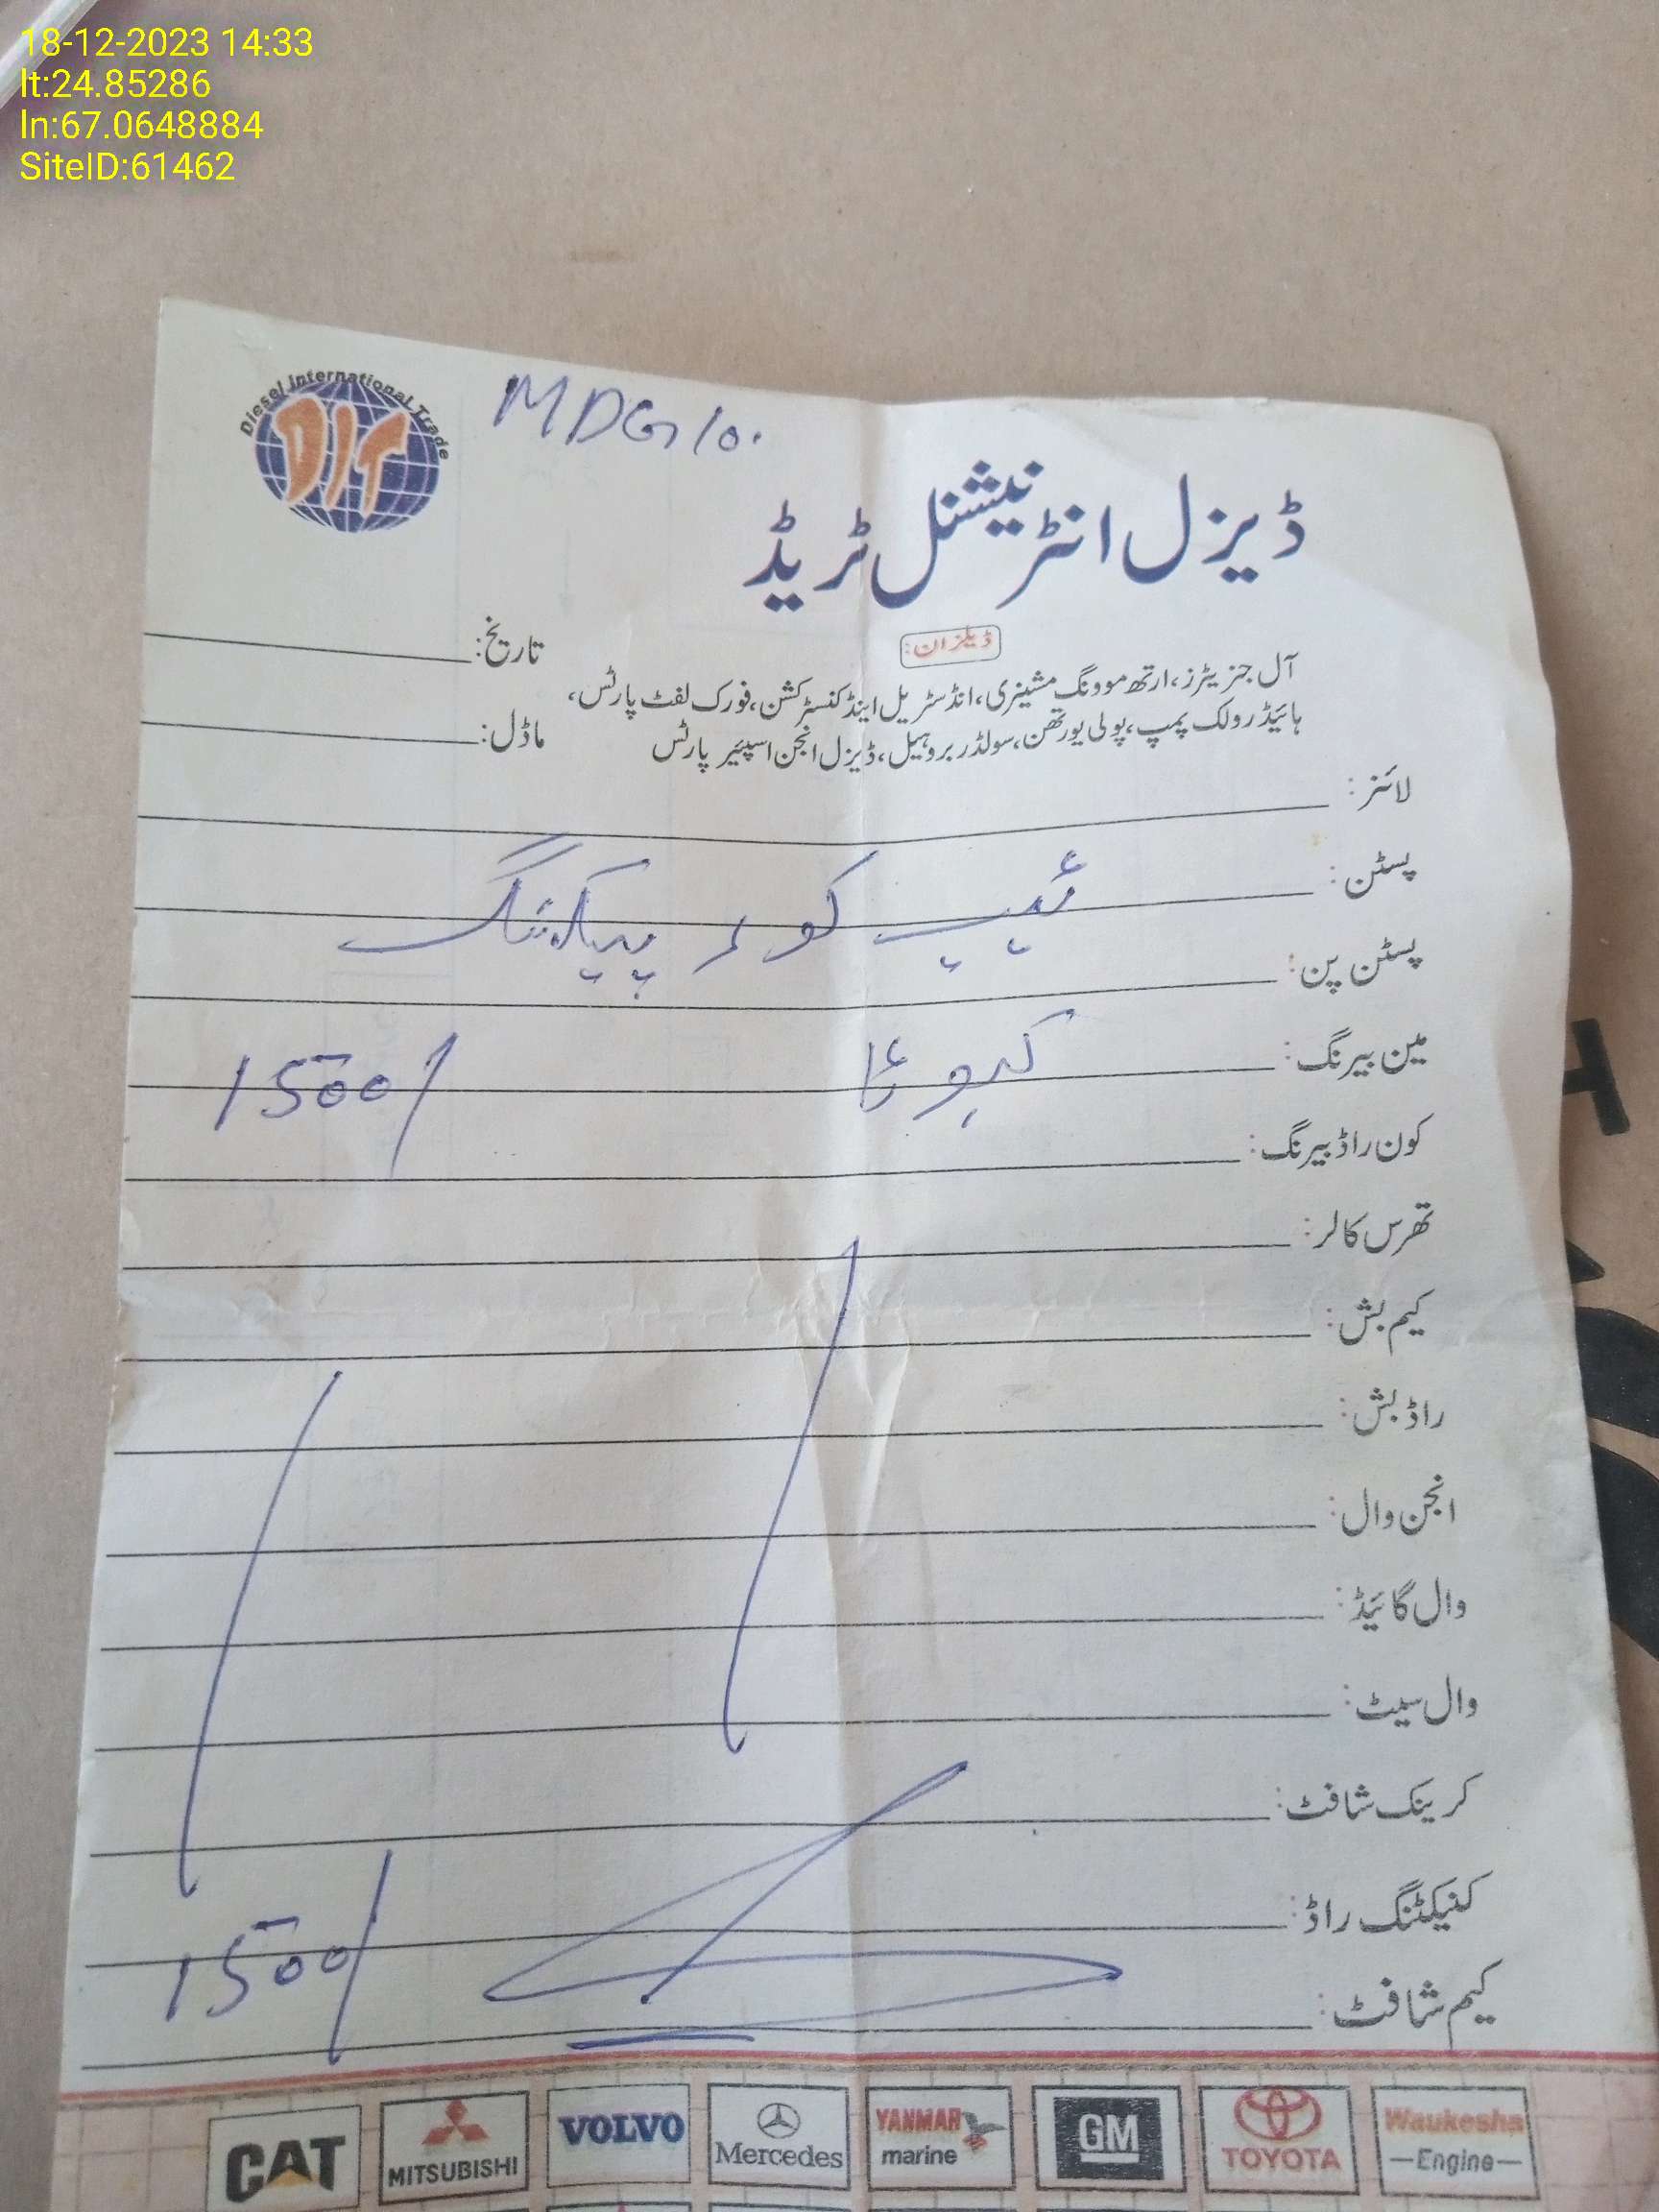 18-12-2023 14:33
lt:24.85286
ln:67.0648884
SiteID:61462
Diesel International Trade
DIT
MDG10.
ڈیزل انٹرنیشنل ٹریڈ
ڈیلرزان:
تاریخ:
آل جنریٹرز، ارتھ موونگ مشینری، انڈسٹریل اینڈ کنسٹرکشن، فورک لفٹ پارٹس،
ہائیڈرولک پمپ، پولی یورتھن، سولڈر بروہیل، ڈیزل انجن اسپئیر پارٹس
ماڈل:
لائنز:
پسٹن:
ٹیپ کور پیکنگ
پسٹن پن:
مین بیرنگ:
کبوٹا 1500/
کون راڈ بیرنگ:
تھرس کالر:
کیم بش:
راڈ بش:
انجن وال:
وال گائیڈ:
وال سیٹ:
کرینک شافٹ:
کنیکٹنگ راڈ:
1500/
کیم شافٹ:
CAT
MITSUBISHI
VOLVO
Mercedes
YANMAR marine
GM
TOYOTA
Waukesha Engine